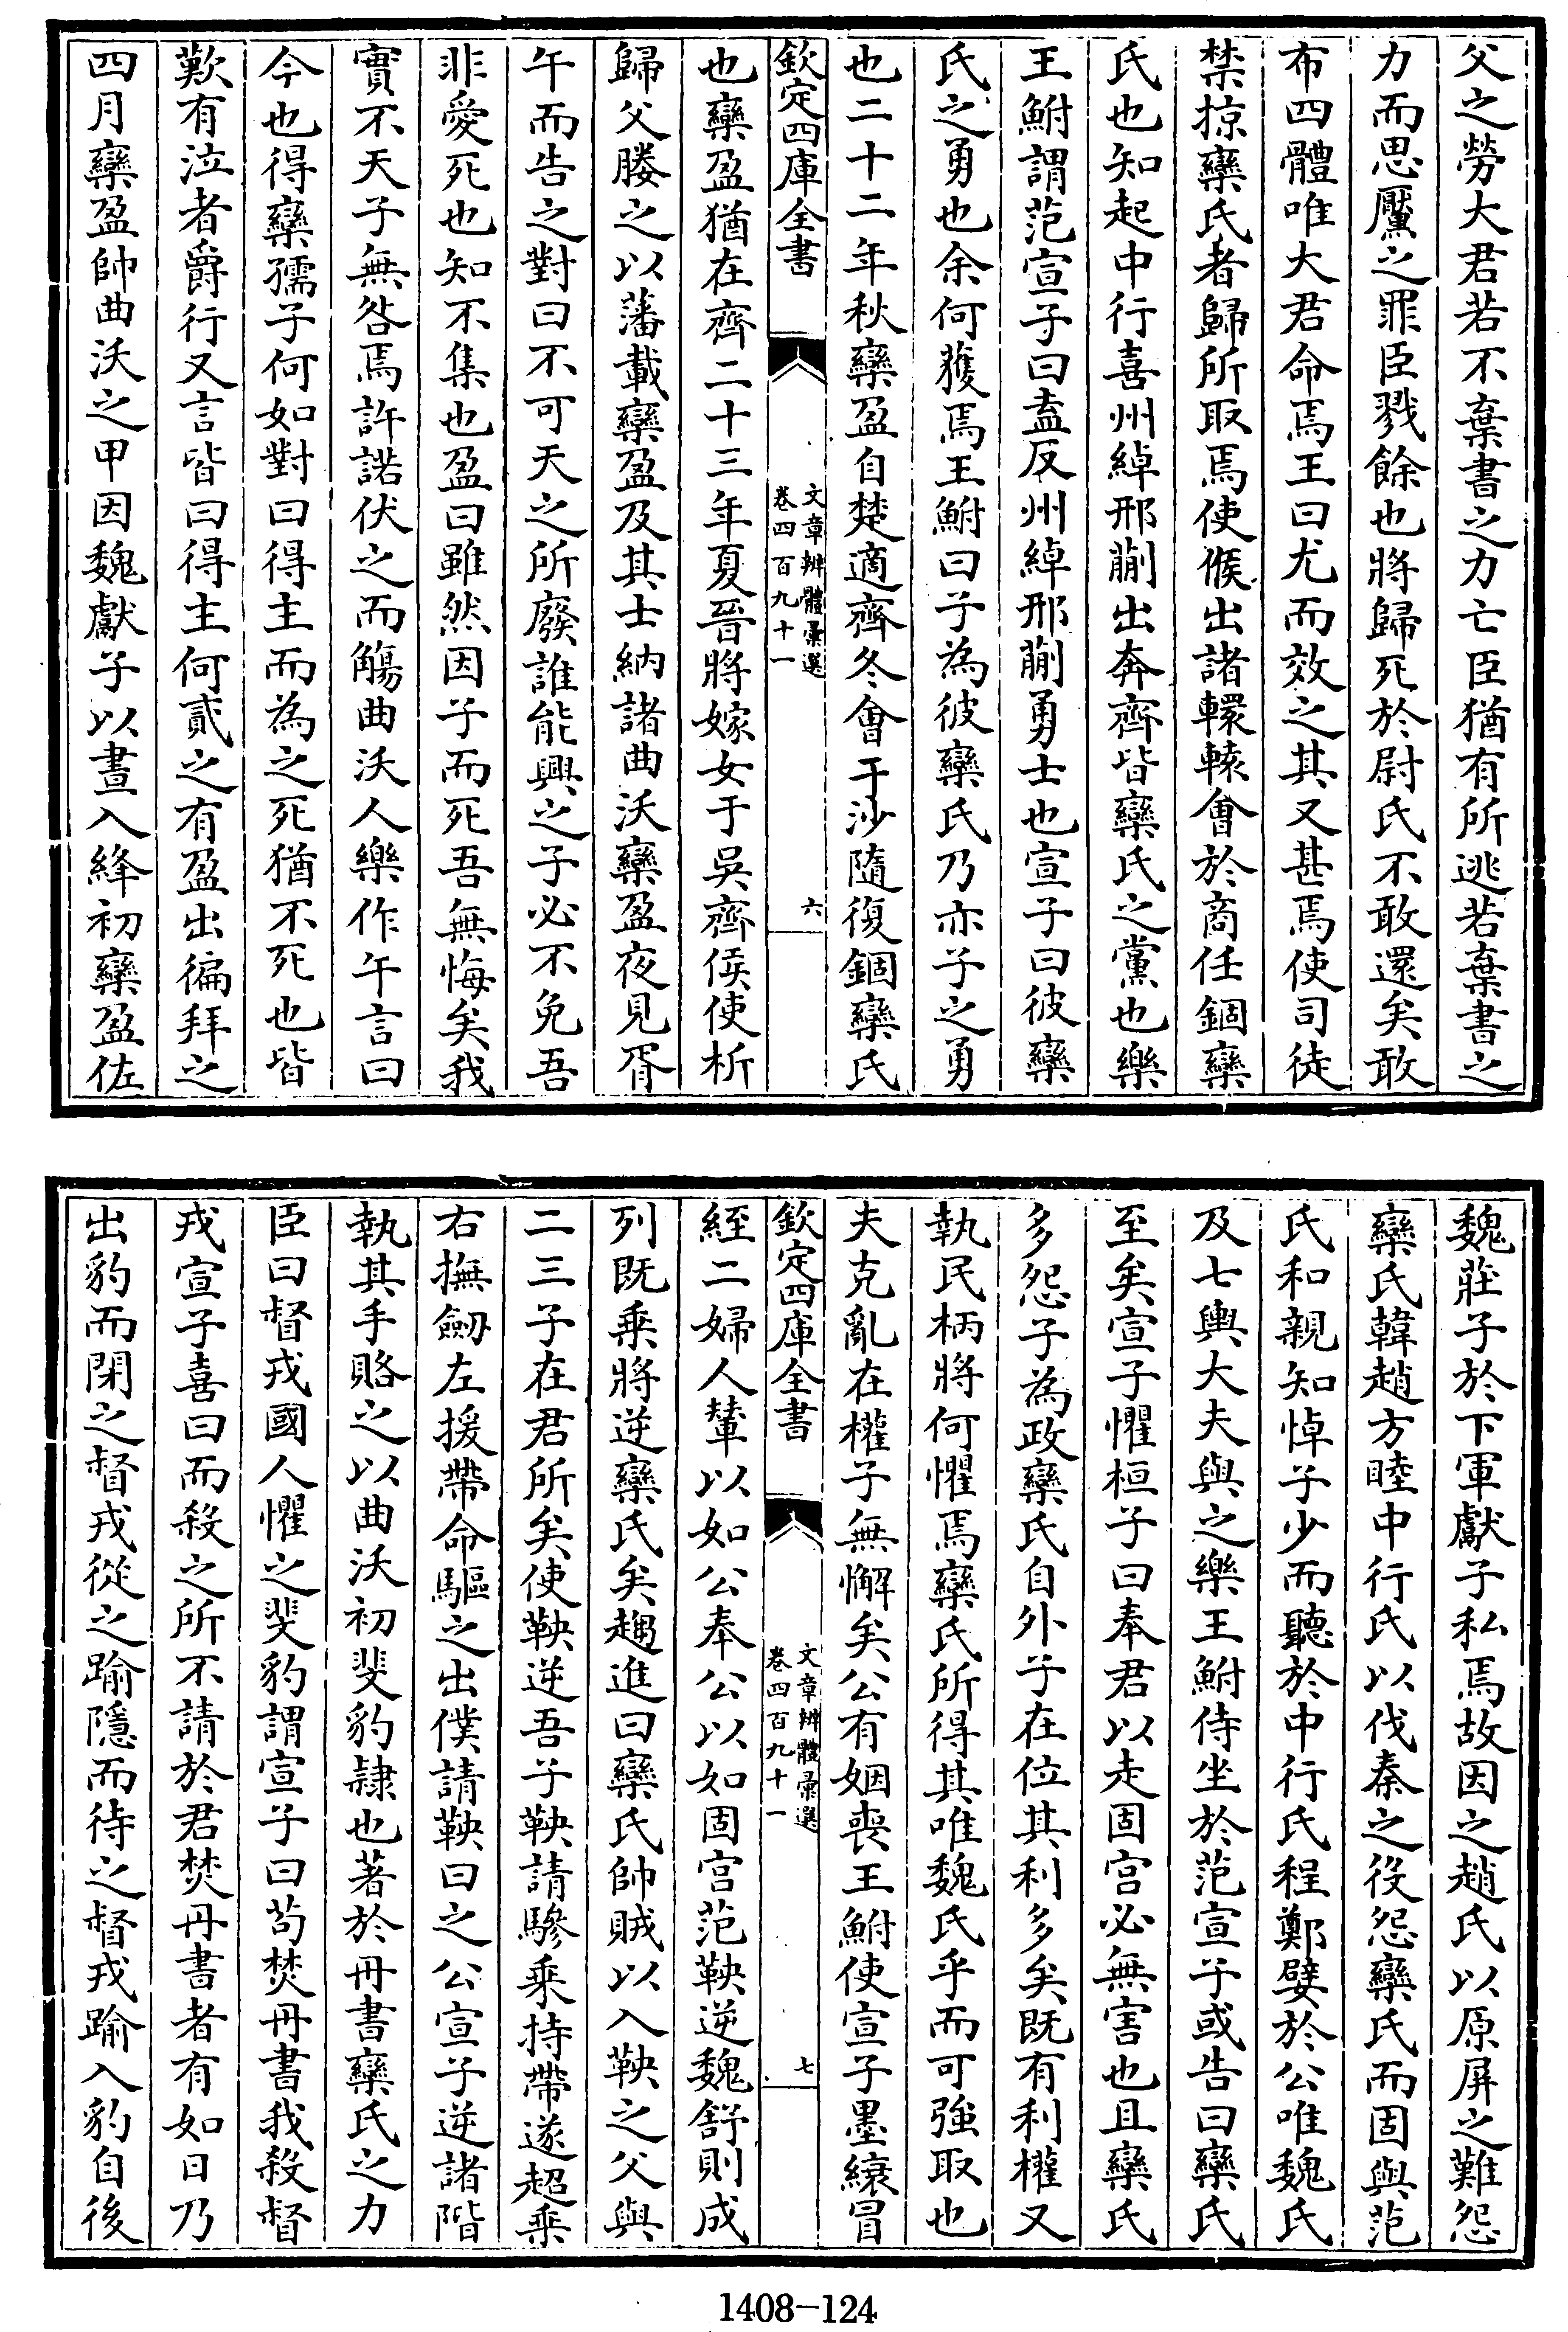 父之勞大君若不棄書之力亡臣猶有所逃若棄書之
力而思黶之罪臣戮餘也將歸死於尉氏不敢還矣敢
布四體唯大君命焉王曰尤而效之其又甚焉使司徒
禁掠欒氏者歸所取焉使候出諸轘轅會於商任錮欒
氏也知起中行喜州綽邢蒯出奔齊皆欒氏之黨也樂
王鮒謂范宣子曰盍反州綽邢蒯勇士也宣子曰彼欒
氏之勇也余何獲焉王鮒曰子為彼欒氏乃亦子之勇
也二十二年秋欒盈自楚適齊冬會于沙隨復錮欒氏
欽定四庫全書
文章辨體彙選
卷四百九十一
六
也欒盈猶在齊二十三年夏晉將嫁女于吳齊侯使析
歸父媵之以藩載欒盈及其士納諸曲沃欒盈夜見胥
午而告之對曰不可天之所廢誰能興之子必不免吾
非愛死也知不集也盈曰雖然因子而死吾無悔矣我
實不天子無咎焉許諾伏之而觴曲沃人樂作午言曰
今也得欒孺子何如對曰得主而為之死猶不死也皆
歎有泣者爵行又言皆曰得主何貳之有盈出徧拜之
四月欒盈帥曲沃之甲因魏獻子以晝入絳初欒盈佐
魏莊子於下軍獻子私焉故因之趙氏以原屏之難怨
欒氏韓趙方睦中行氏以伐秦之役怨欒氏而固與范
氏和親知悼子少而聽於中行氏程鄭嬖於公唯魏氏
及七輿大夫與之樂王鮒侍坐於范宣子或告曰欒氏
至矣宣子懼桓子曰奉君以走固宮必無害也且欒氏
多怨子為政欒氏自外子在位其利多矣既有利權又
執民柄將何懼焉欒氏所得其唯魏氏乎而可強取也
夫克亂在權子無懈矣公有姻喪王鮒使宣子墨縗冒
欽定四庫全書
文章辨體彙選
卷四百九十一
七
絰二婦人輦以如公奉公以如固宮范鞅逆魏舒則成
列既乘將逆欒氏矣趨進曰欒氏帥賊以入鞅之父與
二三子在君所矣使鞅逆吾子鞅請驂乘持帶遂超乘
右撫劒左援帶命驅之出僕請鞅曰之公宣子逆諸階
執其手賂之以曲沃初斐豹隸也著於丹書欒氏之力
臣曰督戎國人懼之斐豹謂宣子曰苟焚丹書我殺督
戎宣子喜曰而殺之所不請於君焚丹書者有如日乃
出豹而閉之督戎從之踰隱而待之督戎踰入豹自後
1408-124